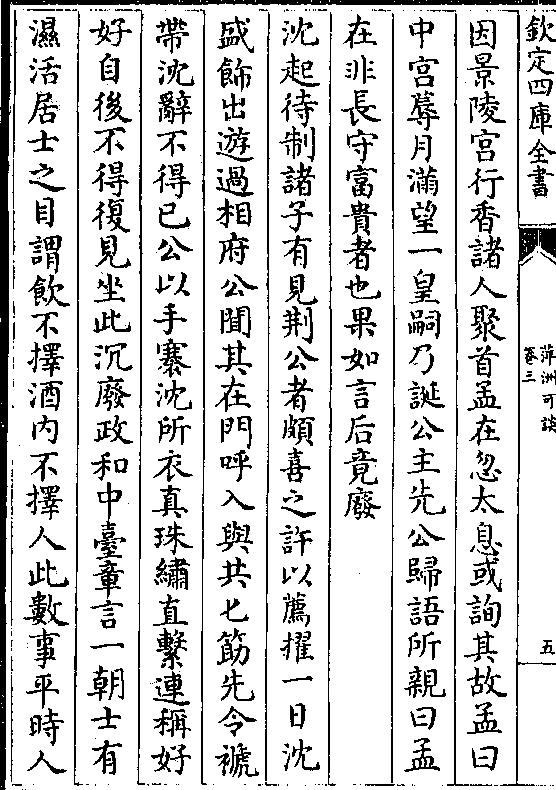 欽定四庫全書
萍洲可談
卷三
五
因景陵宫行香諸人聚首孟在忽太息或詢其故孟曰
中宫蓐月滿望一皇嗣乃誕公主先公歸語所親曰孟
在非長守富貴者也果如言后竟廢
沈起待制諸子有見荆公者頗喜之許以薦擢一日沈
盛飾出遊過相府公聞其在門呼入與共匕筯先令褫
帶沈辭不得已公以手褰沈所衣真珠繡直繫連稱好
好自後不得復見坐此沉廢政和中臺章言一朝士有
濕活居士之目謂飲不擇酒内不擇人此數事平時人